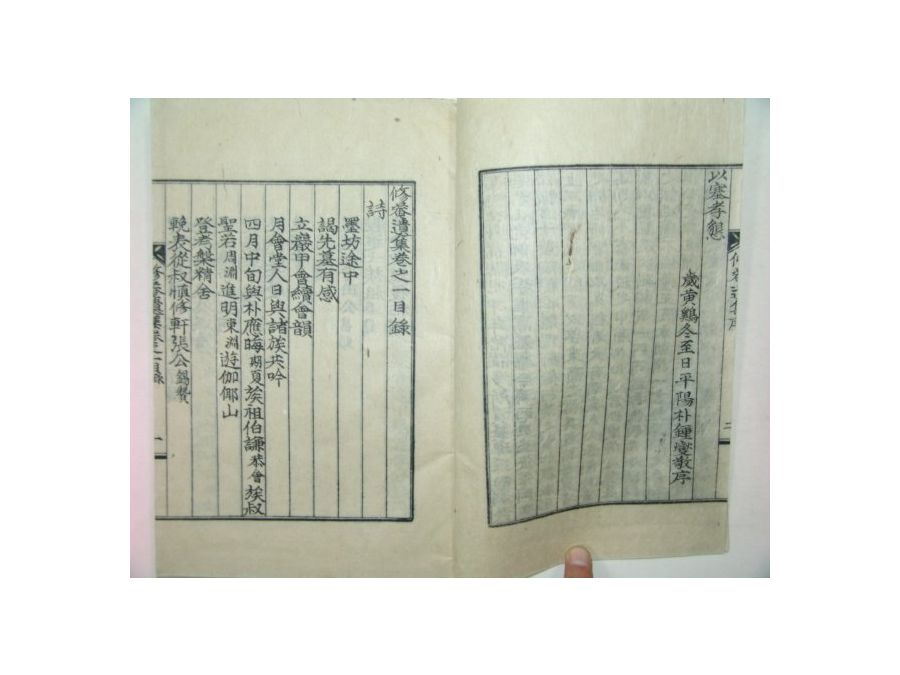 以塞孝態
歲黃鷄冬至日平陽朴鍾燮敬序
二
修菴遺集卷之一目錄
詩
墨坊途中
謁先墓有感
立巖甲會續會韻
月會堂人日與諸族共吟
四月中旬與朴應晦期夏族祖伯謙恭會族叔
聖若周淵進明東淵遊伽倻山
登考槃精舍
輓表從叔愼修軒張公錫贊
修菴遺集卷之一目錄
一